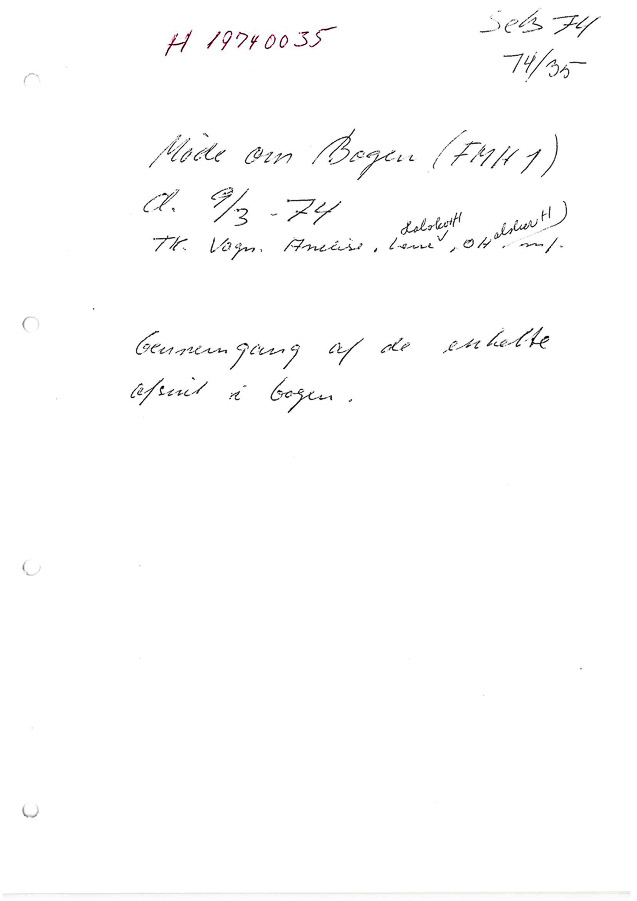 H 19740035
Seb 74
74/35
Møde om Bogen (FMH 1)
d. 9/3 - 74
TK. Vagn. Anelise, Lene, OH m/.
Gennemgang af de enkelte
afsnit i bogen.